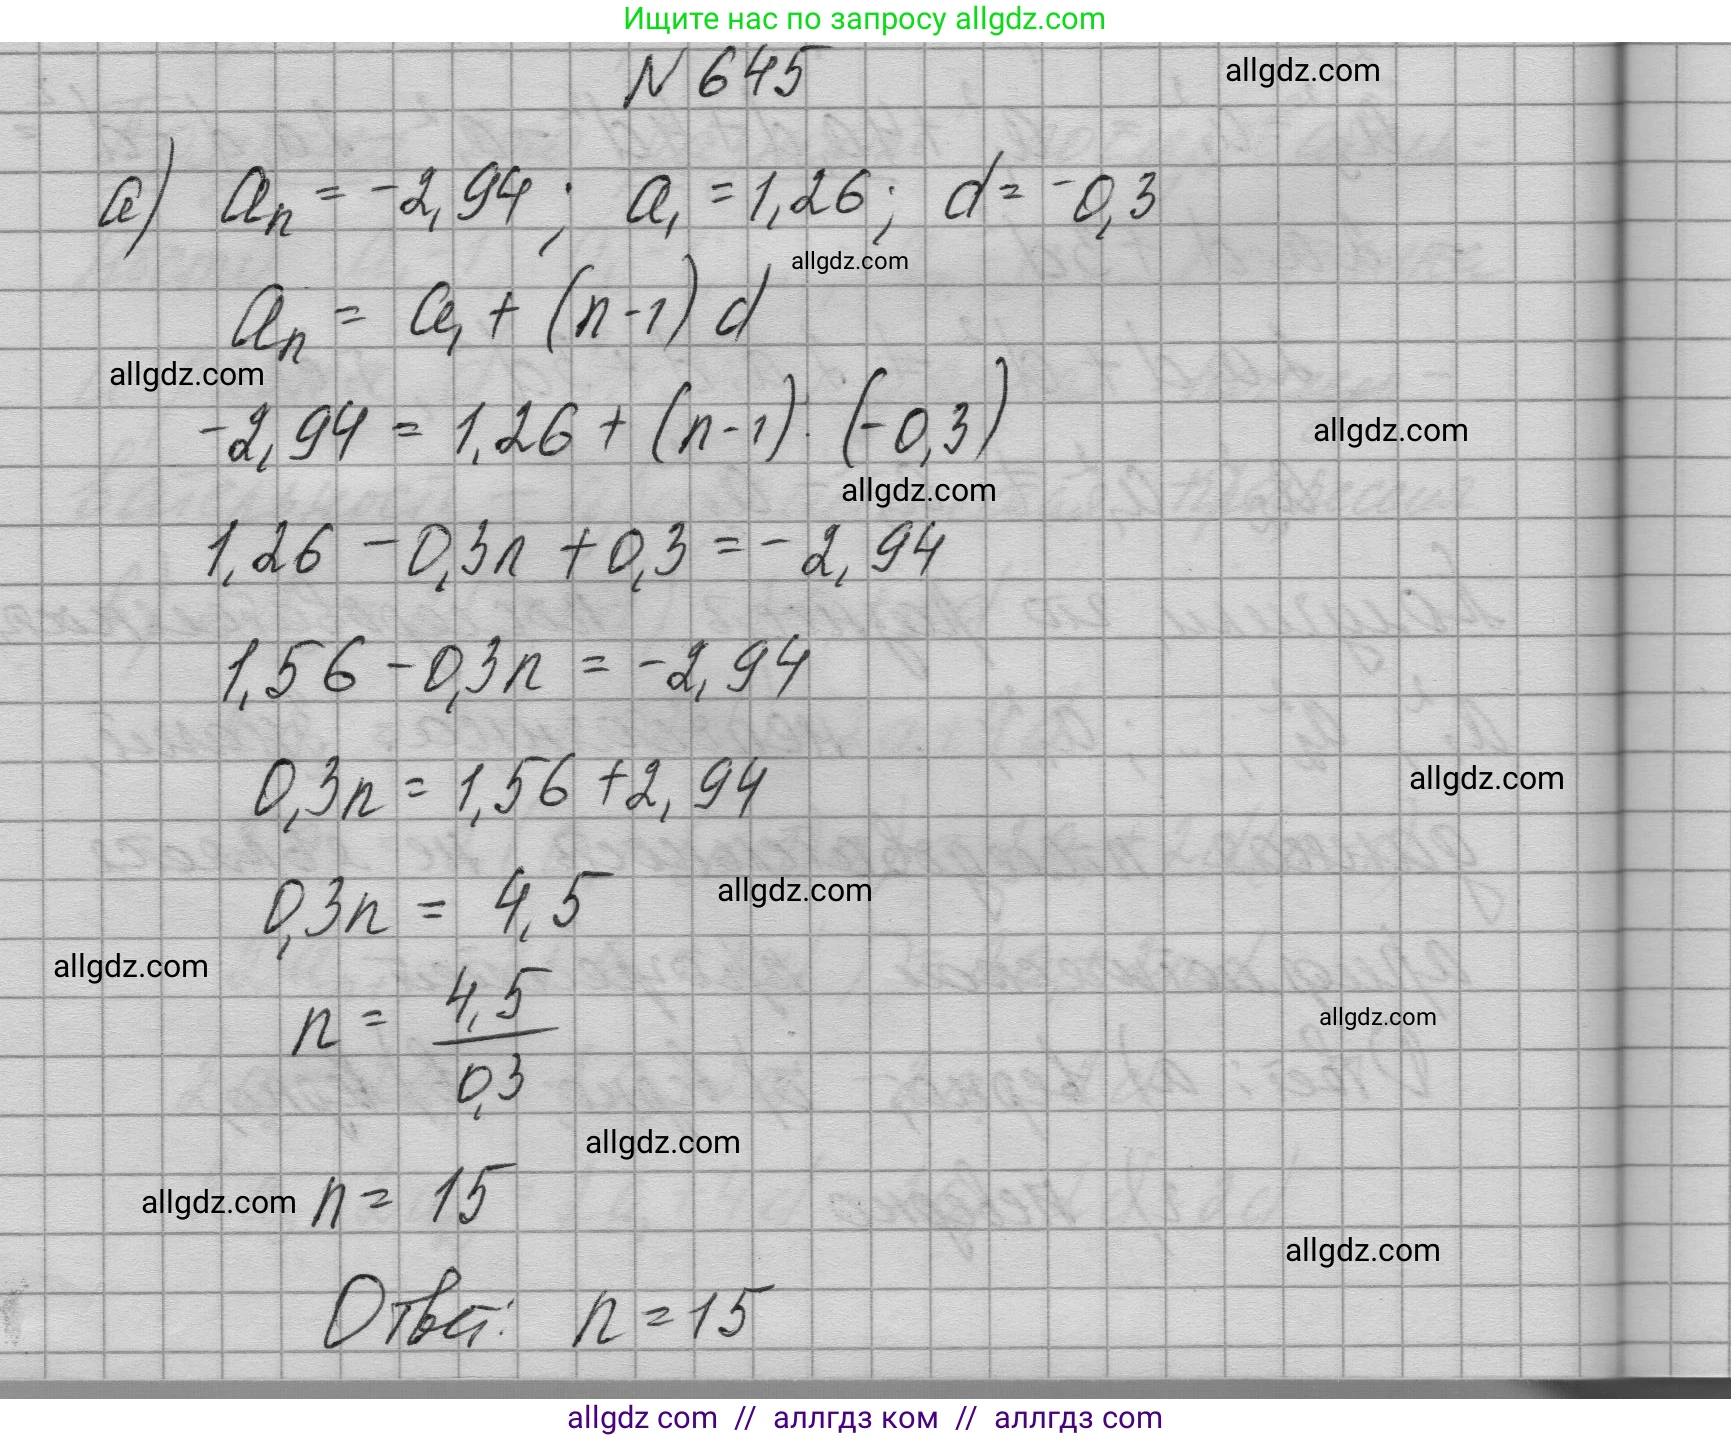 Ищите нас по запросу allgdz.com
N 645
allgdz.com
а) aₙ = -2,94; a₁ = 1,26; d = -0,3
allgdz.com
aₙ = a₁ + (n-1) d
allgdz.com
-2,94 = 1,26 + (n-1) · (-0,3)
allgdz.com
allgdz.com
1,26 - 0,3n + 0,3 = -2,94
1,56 - 0,3n = -2,94
0,3n = 1,56 + 2,94
allgdz.com
0,3n = 4,5
allgdz.com
allgdz.com
n = 4,5/0,3
allgdz.com
allgdz.com
allgdz.com
n = 15
allgdz.com
Ответ: n = 15
allgdz com // аллгдз ком // аллгдз com